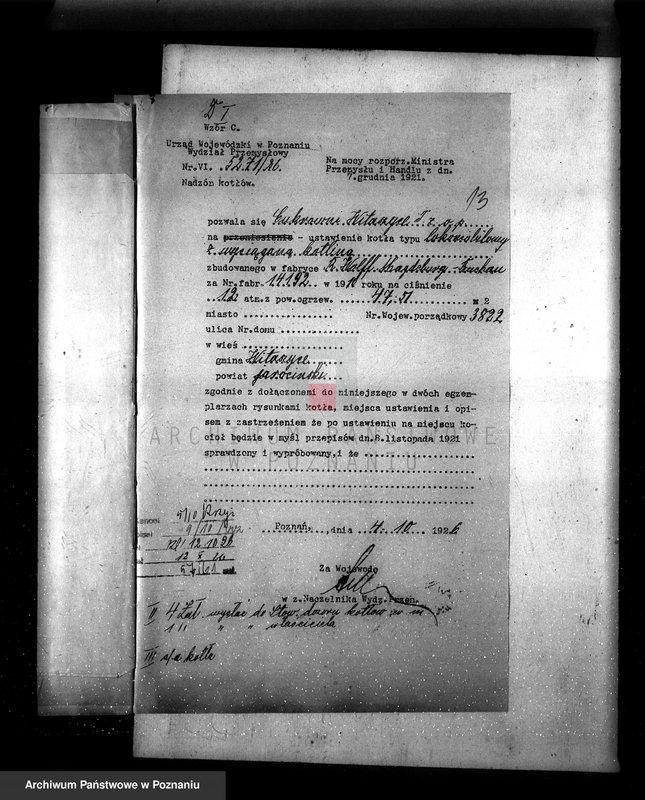 D I
Wzór C.
Urząd Wojewódzki w Poznaniu
Wydział Przemysłowy
Nr.VI. .5271/26.
Nadzór kotłów.
Na mocy rozporz.Ministra
Przemysłu i Handlu z dn.
7.grudnia 1921.
13
pozwala się Cukrowni Witaszyce T.z o.p.
na przeniesienie - ustawienie kotła typu lokomobilowy
z wyciąganą
zbudowanego w fabryce R. Wolff Magdeburg-Buckau
za Nr.fabr. 14192 .. w 19 roku na ciśnienie
..12 atm.z pow.ogrzew. ......47,51........ m 2
miasto ................ Nr.Wojew.porządkowy 3822
ulica Nr.domu ..............
w wieś ................
gmina Witaszyce......
powiat jarociński...
zgodnie z dołączonemi do niniejszego w dwóch egzem-
plarzach rysunkami kotła, miejsca ustawienia i opi-
sem z zastrzeżeniem że po ustawieniu na miejscu ko-
cioł będzie w myśl przepisów dn.8.listopada 1921
sprawdzony i wypróbowany,i że ....................
ARCHIWUM PAŃSTWOWE
W POZNANIU
9/10
12 10 26
...Poznań...,dnia ..4.10...1926
Za Wojewodę
w z.Naczelnika Wydz.Przem.
II 4 Zał. wysłać do Stow. dozoru kotłów w m
1 " " " właściciela
III a/a kotła
Archiwum Państwowe w Poznaniu